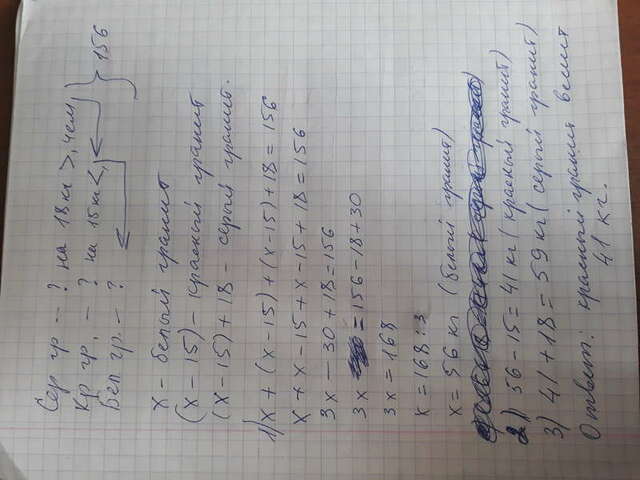 Сер гр – ? на 18 кг >, чем
Кр гр. – ? на 15 кг <, } 156
Бел гр. – ?
х – белый гранит
(х – 15) – красный гранит
(х – 15) + 18 – серый гранит.
1) х + (х – 15) + (х – 15) + 18 = 156
х + х – 15 + х – 15 + 18 = 156
3х – 30 + 18 = 156
3х = 156 – 18 + 30
3х = 168
х = 168 : 3
х = 56 кг (белый гранит)
2) 56 – 15 = 41 кг (красный гранит)
3) 41 + 18 = 59 кг (серый гранит)
Ответ: красный гранит весит
41 кг.